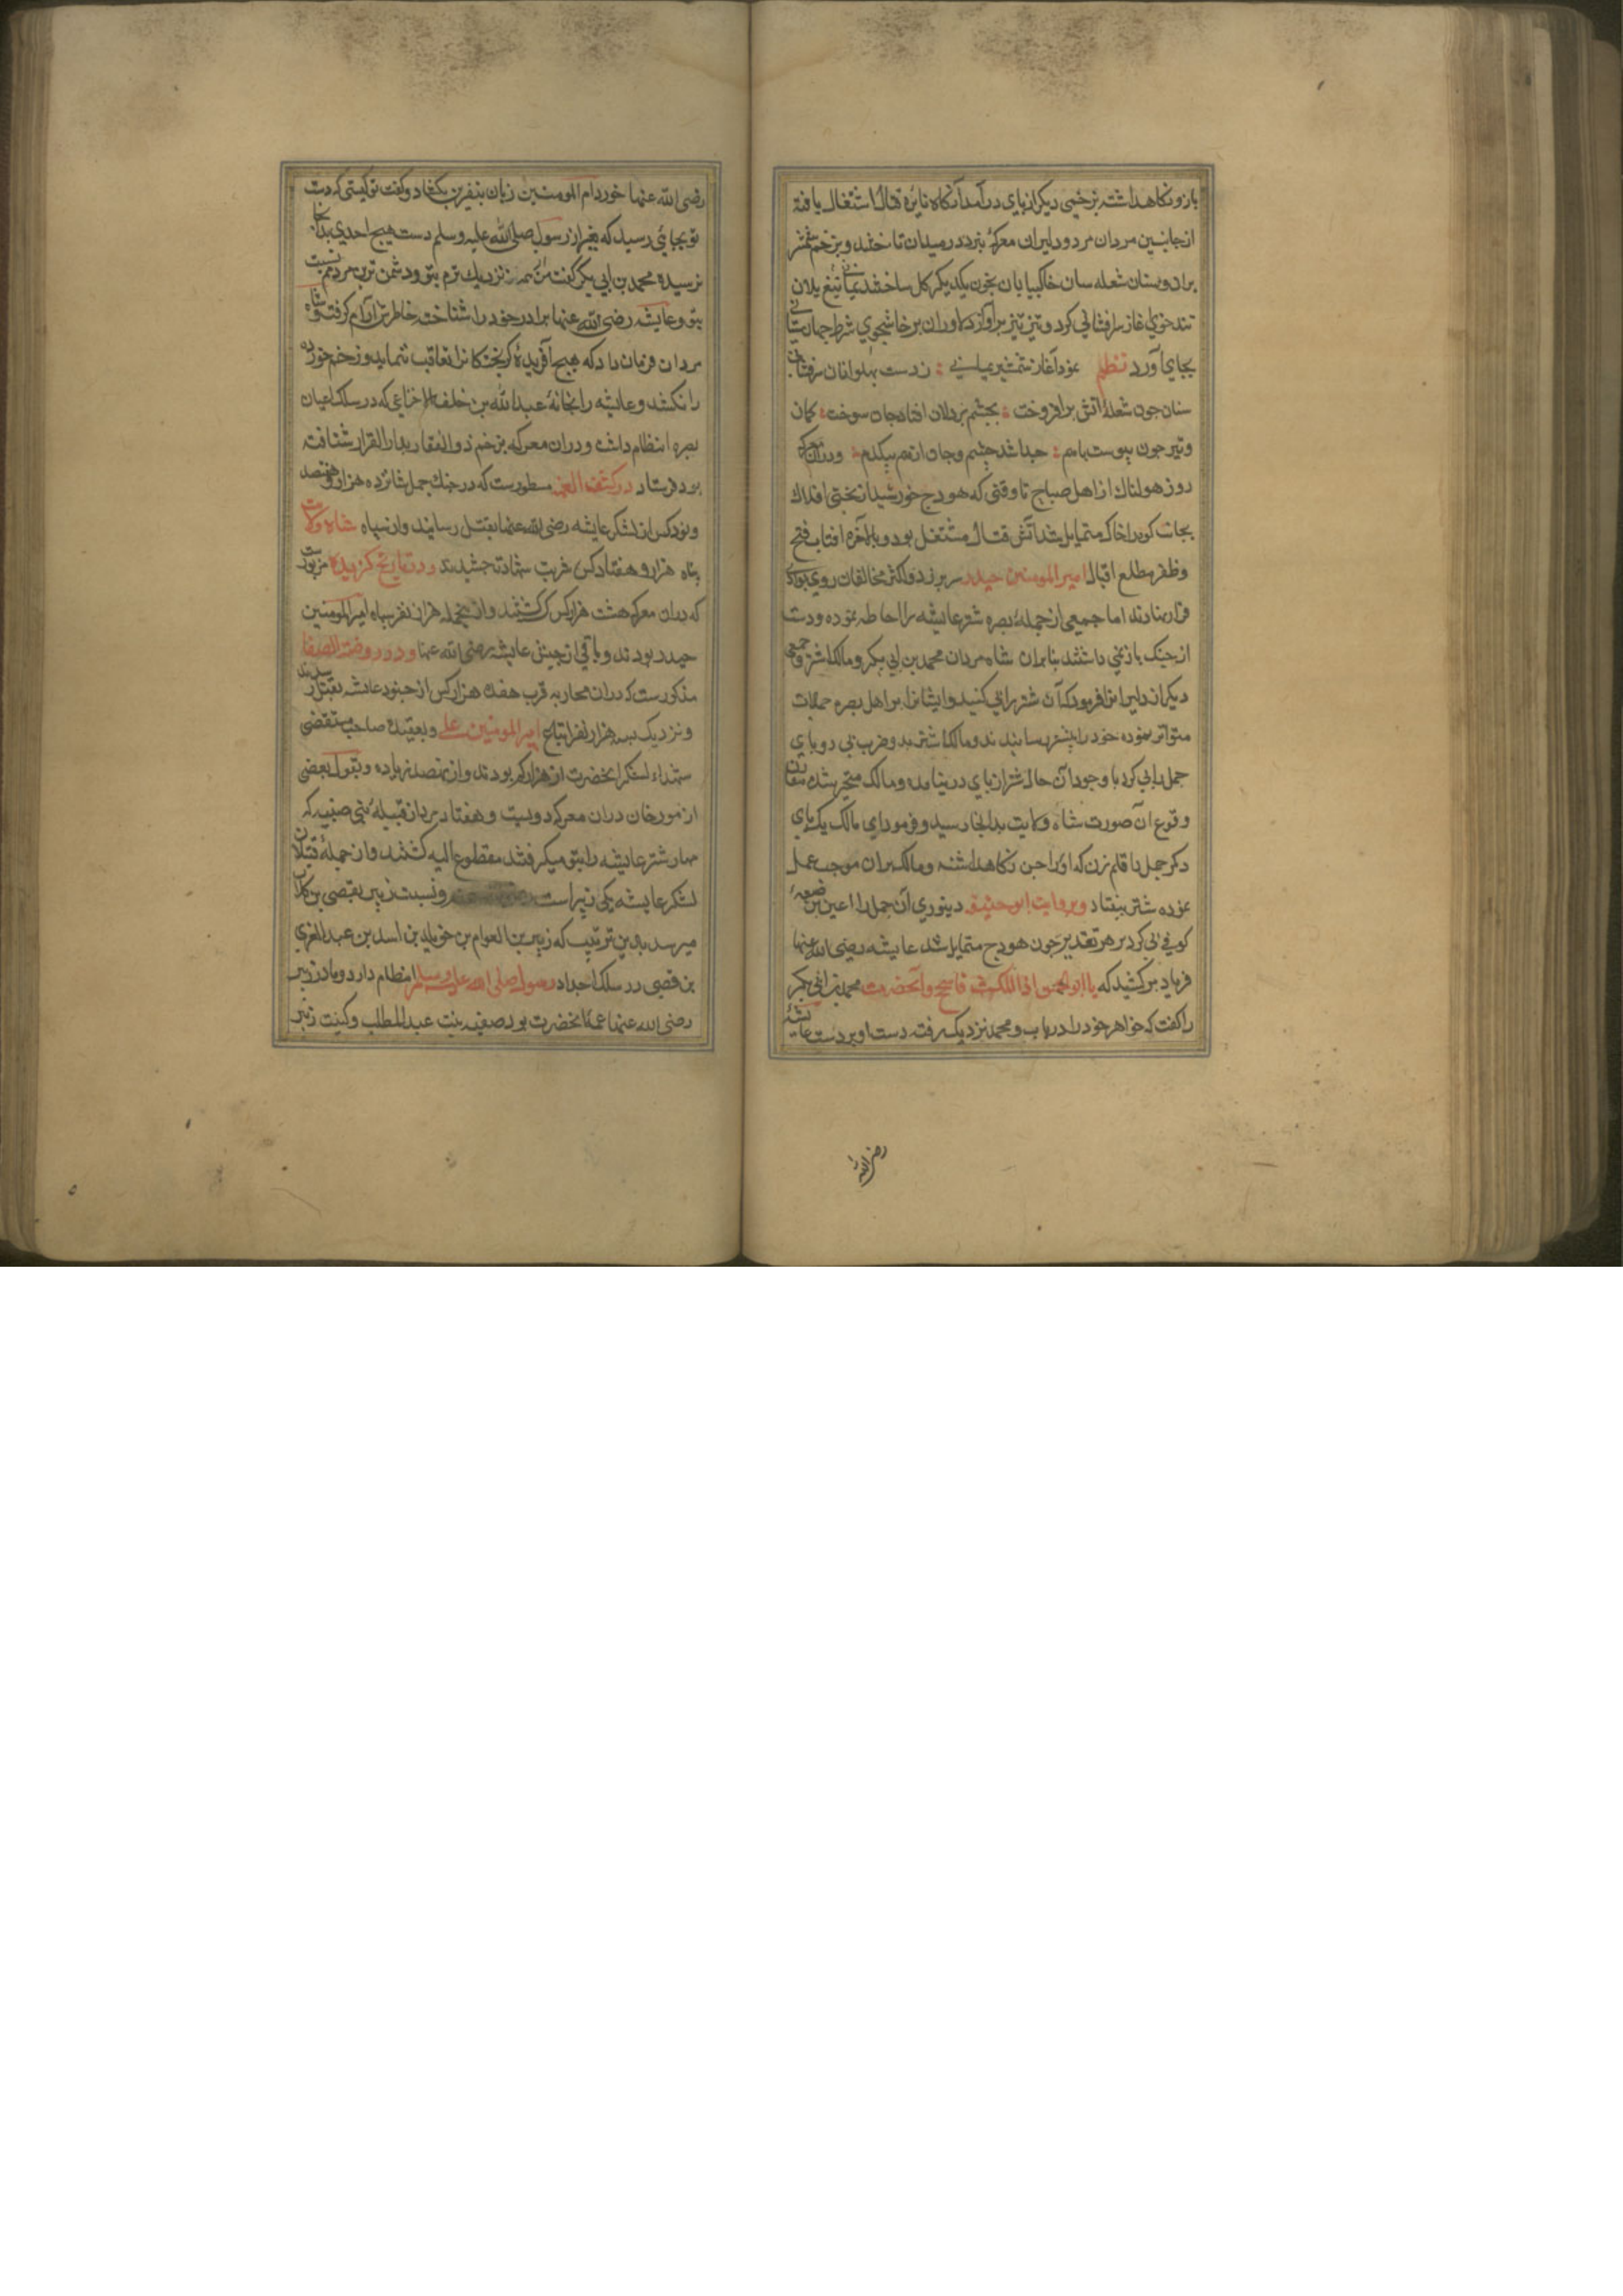 بازو نکاهداشته بزخمی دیکر از پای درآمد آنکاه نایره قتال اشتغال یافته
از جانبین مردان مرد و دلیران معرکهٔ نبرد در میدان تاختند و بزخم شمشیر
بران و سنان شعله سان خاک بیابان بخون یکدیکر کل ساختند تیغ یلان
تندخوی اغاز سرافشانی کرد و تیر تیزپر دلاوران پرخاشجوی شرط جهانستانی
بجای آورد نظم نمود آغاز شمشیر یمانی ز دست پهلوانان سرفشانی
سنان چون شعلهٔ آتش برافروخت بچشم پردلان افتاد جان سوخت کمان
وتیر چون پیوست باهم جدا شد جسم و جان از هم بیکدم و دران معرکه
روز هولناک از اهل صباح تا وقتی که هودج خورشید از بختی افلاک
بجانب کوهان خاک متمایل شد آتش قتال مشتعل بود و بالآخره افتاب فتح
وظفر از مطلع اقبال امیر المومنین حیدر سر بر زد و اکثر مخالفان روی بوادی
فرار نهادند اما جمعی از جملهٔ بصره شتر عایشه را احاطه نموده و دست
از جنک باز نمی داشتند بنابران شاه مردان محمد بن ابی بکر و مالک اشتر و جمعی
دیکر از دلیرانرا فرمود که آن شتر را پی کنید و ایشان بر اهل بصره حملات
متواتر نموده خود را بشتر رسانیدند و مالک اشتر بدو ضرب پی دو پای
جمل را پی کرد با وجود آن حال شتر از پای در نیامده و مالک متحیر شده مقارن
وقوع آن صورت شاه ولایت بدانجا رسید و فرمود ای مالک یک پای
دیکر جمل را قلم زن که اورا جن نکاهداشته و مالک بران موجب عمل
نموده شتر بیفتاد و بروایت ابو حنیفه دینوری آن جمل را اعین بن ضبعهٔ
کوفی پی کرد بر هر تقدیر چون هودج متمایل شد عایشه رضی الله عنها
فریاد برکشید که یا ابو الحسن اذا ملکت فاسجح وآنحضرت محمد بن ابی بکر
را کفت که خواهر خود را دریاب و محمد نزدیک رفته دست او بر دست عایشهٔ
رضی الله
رضی الله عنها خورد ام المومنین زبان بنفرین بکشاد و کفت تو کیستی که دست
تو بجایی رسید که بغیر از رسول صلی الله علیه وسلم دست هیچ احدی بدانجا
نرسیده محمد بن ابی بکر کفت من از همه نزدیک ترم بتو و دشمن ترین مردمم نسبت
بتو و عایشه رضی الله عنها برادر خود را شناخته خاطرش آرام کرفت و شاه
مردان فرمان داد که هیچ آفریدهٔ کریختکانرا تعاقب ننماید و زخم خورده
را نکشد و عایشه را بخانهٔ عبدالله بن خلف الخزاعی که در سلک اعیان
بصره انتظام داشت و دران معرکه بزخم ذوالفقار بدار القرار شتافته
بود فرستاد در کشف الغمه مسطورست که در جنک جمل شانزده هزار و هفتصد
و نود کس از لشکر عایشه رضی الله عنها بقتل رسانید و از سپاه شاه ولایت
پناه هزار و هفتاد کس شربت شهادت چشیدند و در تاریخ کزیده مزبورست
که دران معرکه هشت هزار کس کشتند و از جمله هزار نفر سپاه امیر المومنین
حیدر بودند و باقی از جیش عایشه رضی الله عنها و در روضة الصفا
مذکورست که دران محاربه قرب هفده هزار کس از جنود عایشه بقتل رسیدند
و نزدیک به هزار نفر اتباع امیر المومنین علی و بعقیدهٔ صاحب مستقصی
شهداء لشکر آنحضرت از هزار کم بودند و از نهصد زیاده و بقول بعضی
از مورخان دران معرکه دویست و هفتاد مرد از قبیلهٔ بنی ضبه که
مهار شتر عایشه را بنوبت میکرفتند مقطوع الید کشتند و از جملهٔ قتیلان
لشکر عایشه یکی زبیر است و نسبت زبیر بقصی بن کلاب
میرسد بدین ترتیب که زبیر بن العوام بن خویلد بن اسد بن عبد العزی
بن قصی در سلک اجداد رسول صلی الله علیه وسلم انتظام دارد و مادر زبیر
رضی الله عنها عمهٔ آنحضرت بود صفیه بنت عبد المطلب و کنیت زبیر